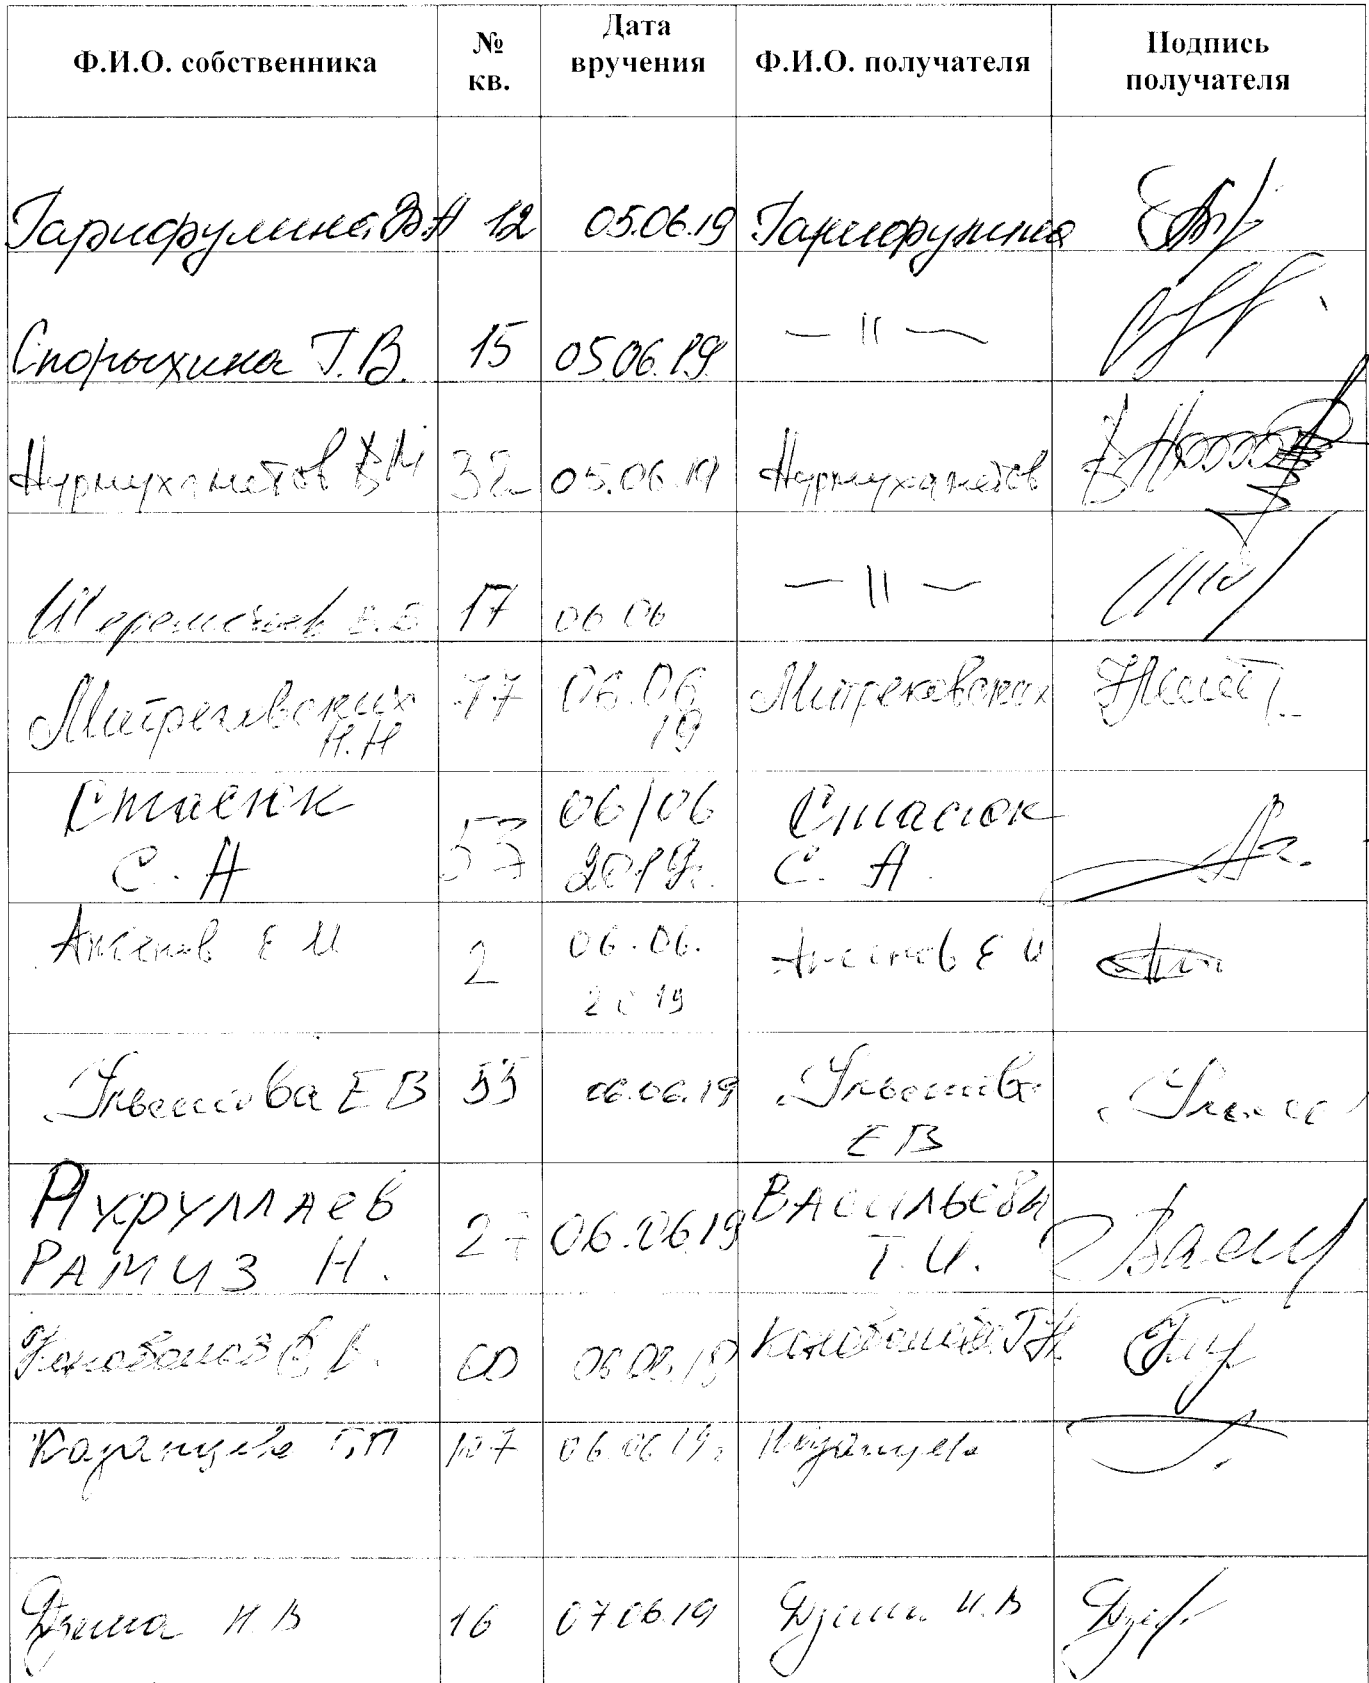 Ф.И.О. собственника № кв. Дата вручения Ф.И.О. получателя Подпись получателя
Гарифулина В.А 12 05.06.19 Гарифулина
Спорыхина Т.В. 15 05.06.19 — || —
Нурмухаметов В М 32 05.06.19 Нурмухаметов
17 06 06 — || —
Н.Н 77 06.06 19
Стасюк С. А 57 06/06 2019г. Стасюк С. А.
Аксенов Е И 2 06.06. 2019 Аксенов Е И
Е В 55 06.06.19 Е В
РАМИЗ Н. 27 06.06.19 ВАСИЛЬЕВА Т.И.
Коновалов В. 60 06.06.19 Коновалова
Казанцева Г.П 107 06.06 19г Казанцева
Дзюма Н.В 16 07.06.19 Дзюма Н.В